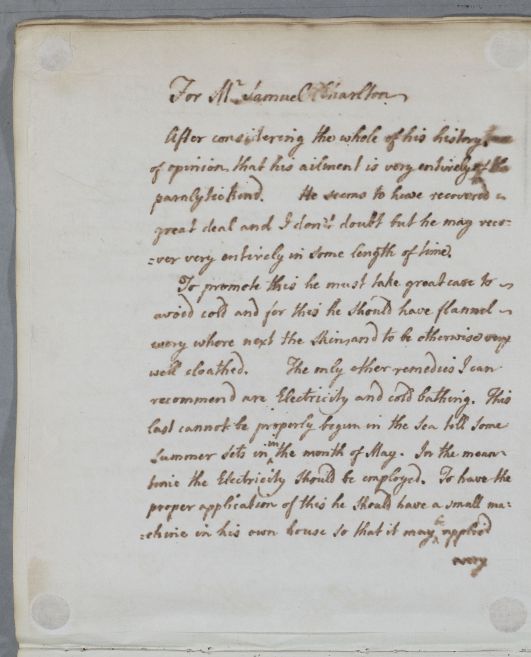 For Mr Samuel Charlton
After considering the whole of his history I am
of opinion that his ailment is very entirely of the
paralytic kind. He seems to have recovered a
great deal and I don't doubt but he may reco-
=ver very entirely in some length of time.
To promote this he must take great care to
avoid cold and for this he should have flannel
every where next the skin and to be otherwise very
well cloathed. The only other remedies I can
recommend are Electricity and cold bathing. This
last cannot be properly begun in the Sea till some
Summer sets in, in the month of May. In the mean-
time the Electricity should be employed. To have the
proper application of this he should have a small ma-
=chine in his own house so that it may be applied
every